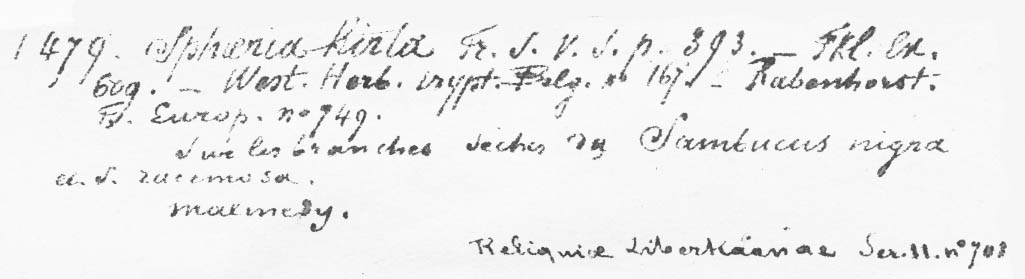 1479. Sphaeria hirta Fr. S. V. S. p. 393. — Fkl. Ex.
609. — West. Herb. crypt. Belg. no 167. — Rabenhorst.
F. Europ. no 749.
Sur les branches sèches du Sambucus nigra
et S. racemosa.
Malmedy.
Reliquiæ Libertianae Ser. II. no 703